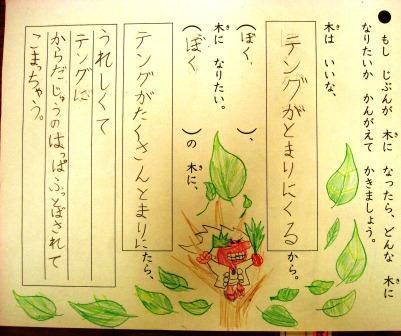 ● もし じぶんが 木に なったら、どんな 木に
なりたいか かんがえて かきましょう。
木は いいな、
テングがとまりにくる から。
（ぼく、 ）、
木に なりたい。
（ぼく ）の 木に、
テングがたくさんとまりに たら、
うれしくて
テングに
からだじゅうのはっぱふっとばされて
こまっちゃう。